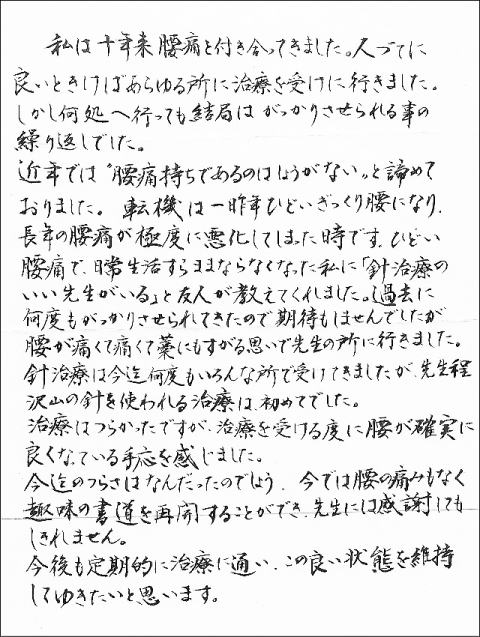 私は十年来腰痛と付き合ってきました。人づてに
良いときけばあらゆる所に治療を受けに行きました。
しかし何処へ行っても結局はがっかりさせられる事の
繰り返しでした。
近年では“腰痛持ちであるのはしょうがない”と諦めて
おりました。転機は一昨年ひどいぎっくり腰になり、
長年の腰痛が極度に悪化してしまった時です。ひどい
腰痛で、日常生活すらままならなくなった私に「針治療の
いい先生がいる」と友人が教えてくれました。過去に
何度もがっかりさせられてきたので期待もしませんでしたが
腰が痛くて痛くて藁にもすがる思いで先生の所に行きました。
針治療は今迄何度もいろんな所で受けてきましたが、先生程
沢山の針を使われる治療は、初めてでした。
治療はつらかったですが、治療を受ける度に腰が確実に
良くなっている手応を感じました。
今迄のつらさはなんだったのでしよう、今では腰の痛みもなく
趣味の書道を再開することができ、先生には感謝しても
しきれません。
今後も定期的に治療に通い、この良い状態を維持
してゆきたいと思います。